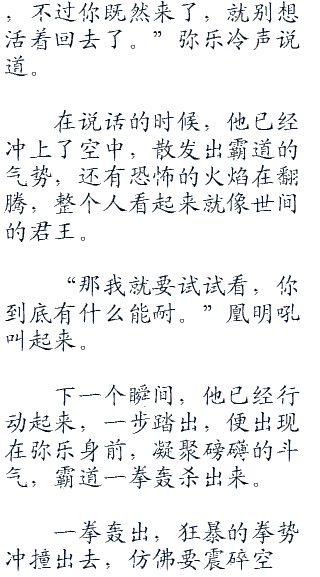 ，不过你既然来了，就别想
活着回去了。”弥乐冷声说
道。
在说话的时候，他已经
冲上了空中，散发出霸道的
气势，还有恐怖的火焰在翻
腾，整个人看起来就像世间
的君王。
“那我就要试试看，你
到底有什么能耐。”凰明吼
叫起来。
下一个瞬间，他已经行
动起来，一步踏出，便出现
在弥乐身前，凝聚磅礴的斗
气，霸道一拳轰杀出来。
一拳轰出，狂暴的拳势
冲撞出去，仿佛要震碎空